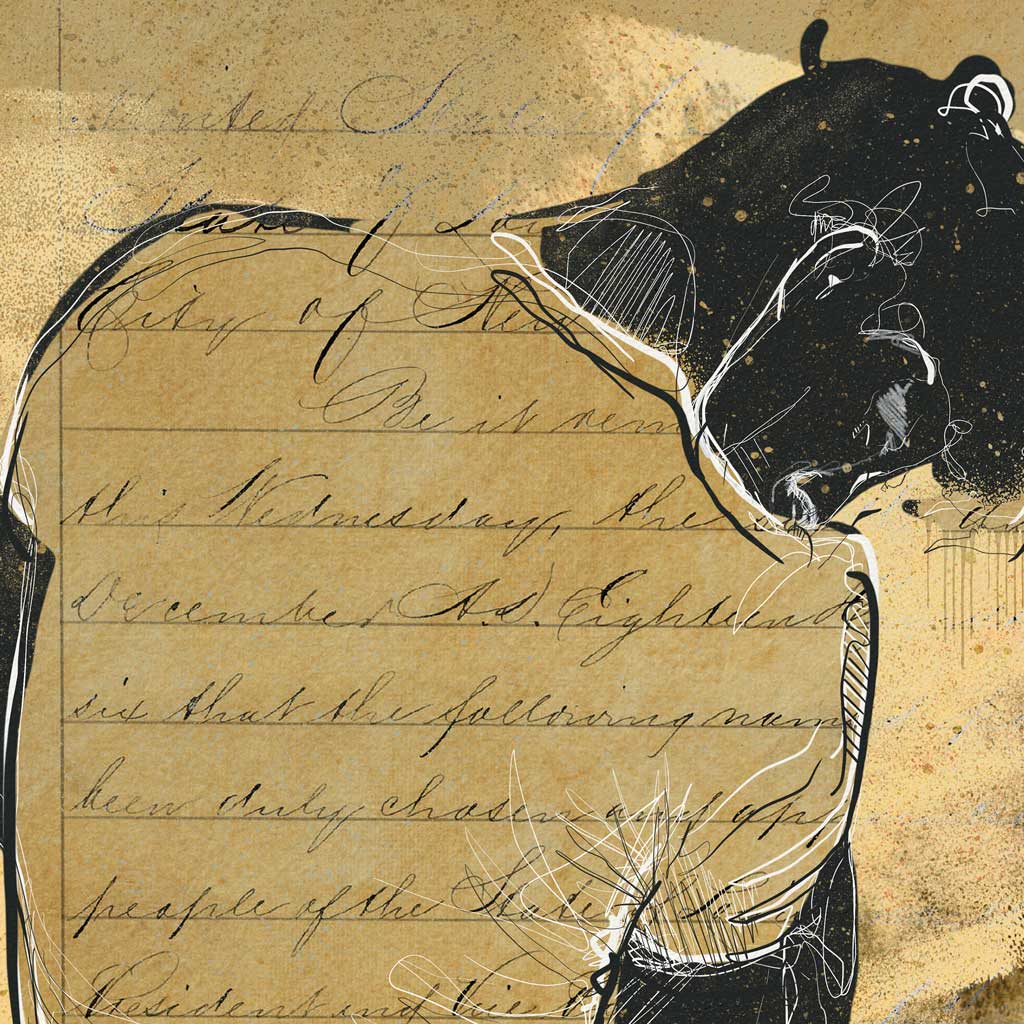 United States
State of Lou
City of New
Be it rem
this Wednesday, the
December A.D. Eighteen
six that the following nam
been duly chosen and app
people of the State
President and Vice